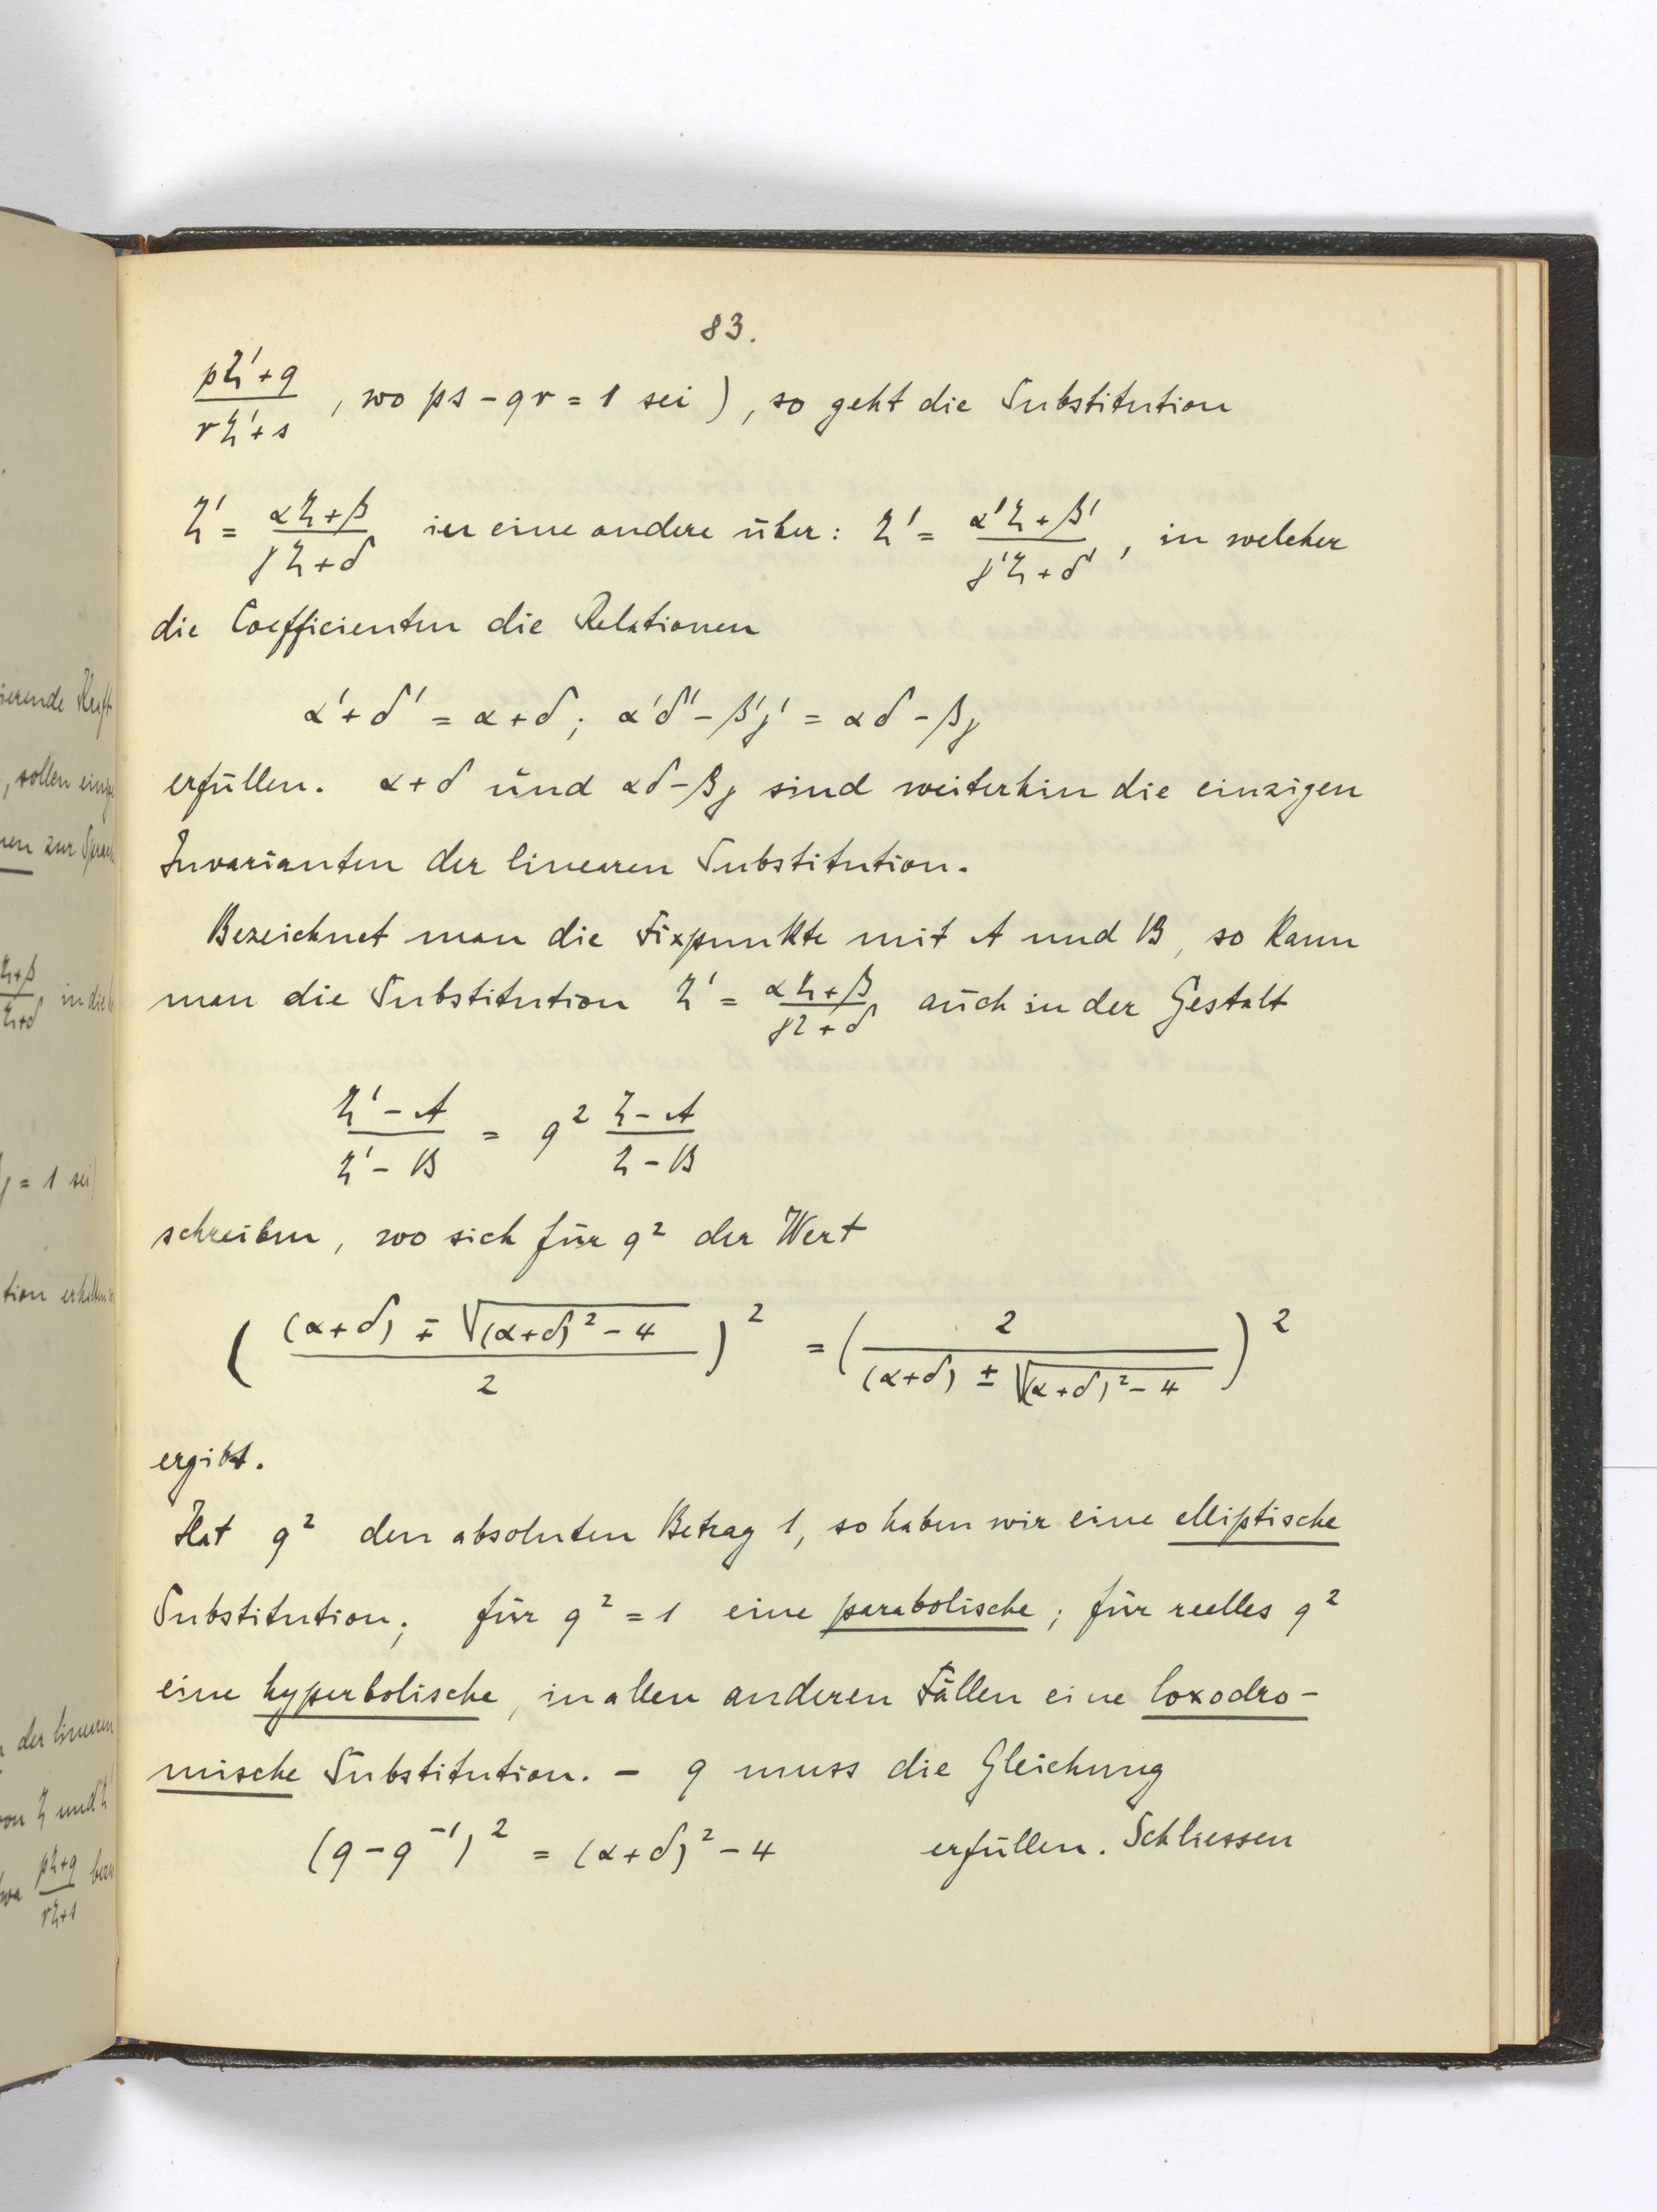 83.
(pζ'+q)/(rζ'+s) , wo ps - qr = 1 sei ) , so geht die Substitution
ζ' = (αζ+β)/(γζ+δ) in eine andere über : ζ' = (α'ζ+β')/(γ'ζ+δ') , in welcher
die Coefficienten die Relationen
α'+δ' = α+δ ; α'δ' - β'γ' = αδ - βγ
erfüllen. α+δ und αδ-βγ sind weiterhin die einzigen
Invarianten der linearen Substitution.
Bezeichnet man die Fixpunkte mit A und B , so kann
man die Substitution ζ' = (αζ+β)/(γζ+δ) auch in der Gestalt
(ζ' - A)/(ζ' - B) = q² (ζ - A)/(ζ - B)
schreiben , wo sich für q² der Wert
( ((α+δ) ∓ √((α+δ)² - 4))/2 )² = ( 2/((α+δ) ± √((α+δ)² - 4)) )²
ergibt.
Hat q² den absoluten Betrag 1, so haben wir eine elliptische
Substitution; für q² = 1 eine parabolische ; für reelles q²
eine hyperbolische , in allen anderen Fällen eine loxodro-
mische Substitution. - q muss die Gleichung
(q - q⁻¹)² = (α+δ)² - 4 erfüllen. Schliessen
ierende Kraft
, sollen
nen zur
in die
γ = 1 sei
tion
der linearen
von ζ und ζ'
(pζ+q)/(rζ+s)